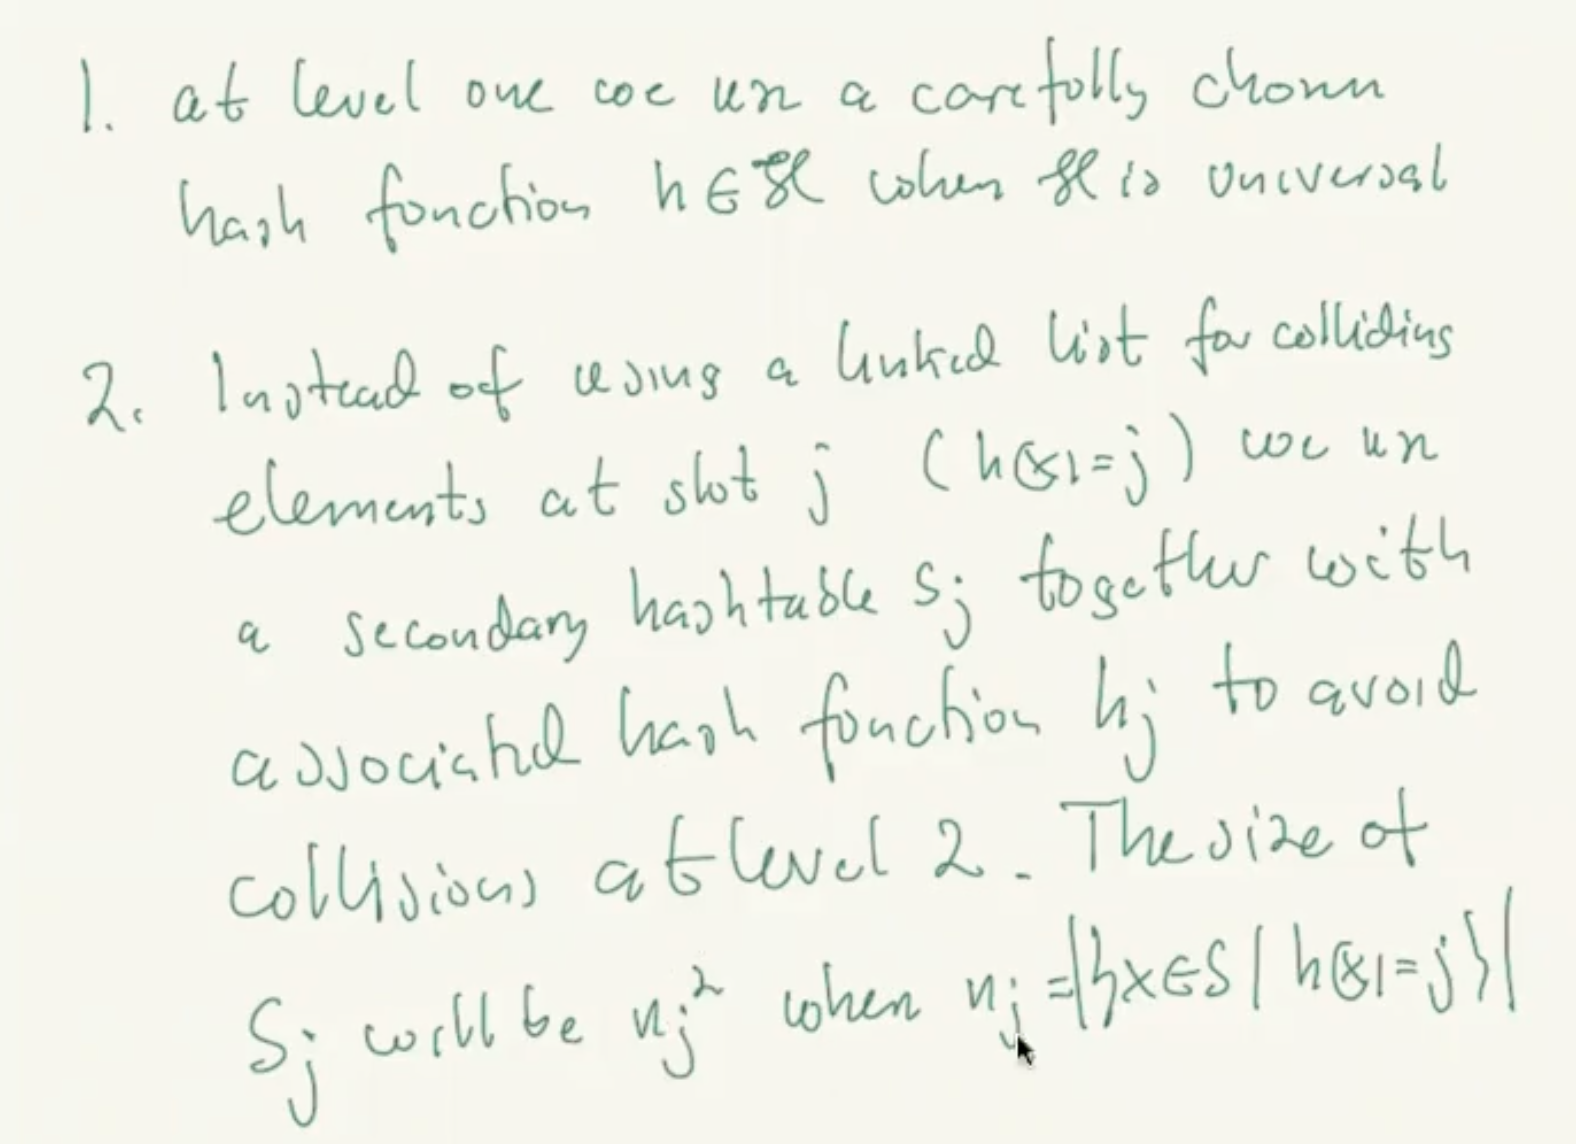 1. at level one we use a carefully chosen
hash function h ∈ ℋ when ℋ is universal
2. Instead of using a linked list for colliding
elements at slot j (h(x)=j) we use
a secondary hashtable Sj together with
associated hash function hj to avoid
collisions at level 2. The size of
Sj will be nj² when nj = |{x∈S | h(x)=j}|